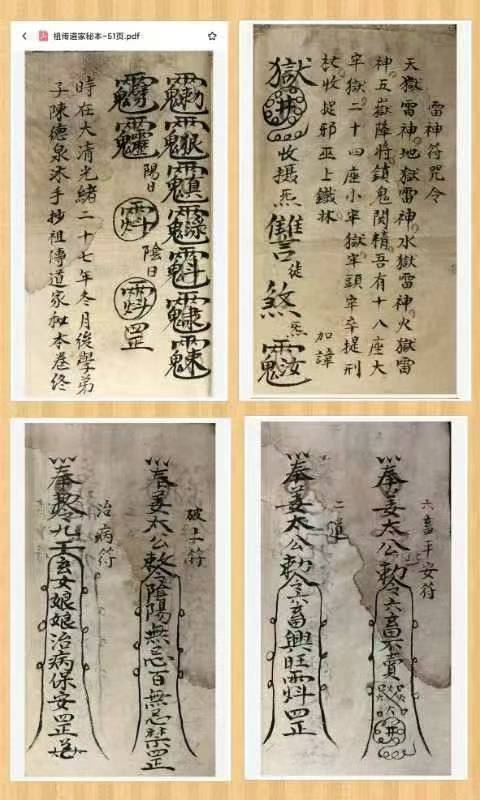 祖传道家秘本-51页.pdf
陽日
陰日
罡
時在大清光緒二十七年冬月後學弟
子陳德泉沐手抄祖傳道家秘本卷終
雷神符咒令
天獄雷神地獄雷神水獄雷神火獄雷
神五嶽降將鎮鬼関精吾有十八座大
牢獄二十四座小牢獄牢頭牢卒提刑
收捉邪巫上鐵
加諱
獄井收攝炁讐徒煞炁
破土符
奉姜太公敕令陰陽無忌百無忌禁罡
治病符
奉敕令九天玄女娘娘治病保安罡
六畜平安符
奉姜太公勅令六畜不賣井
二道
奉姜太公勅令六畜興旺罡